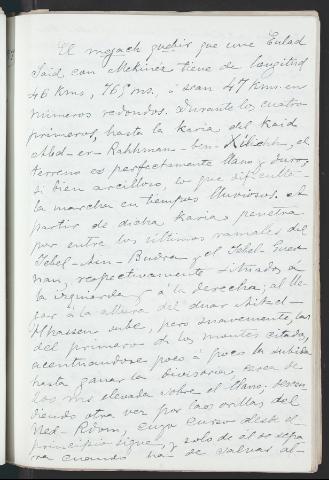 El mejach quebir que une Eulad
Said con Mekinez tiene de longitud
46 kms, 765 ms, o sean 47 kms. en
números redondos. Durante los cuatro
primeros, hasta la karia del kaid
Abd-er-Rahhman-ben-Xilieh, el
terreno es perfectamente llano y duro,
si bien arcilloso, lo que dificulta
la marcha en tiempos lluviosos. A
partir de dicha karia penetra
por entre los últimos ramales del
Yebel-Aen-Budra y el Yebel-Gue
nan, respectivamente situados á
la izquierda y á la derecha; al lle
gar á la altura del duar
Hhassen sube, pero suavemente, las
del primero de los montes citados,
acentuandose poco á poco la subida
hasta ganar la divisoria, cerca de
los ms elevada sobre el llano, descen
diendo otra vez por las orillas del
Ued-Rdom, cuyo curso desde el
principio sigue, y solo de él se sepa
ra cuando ha de salvar al-